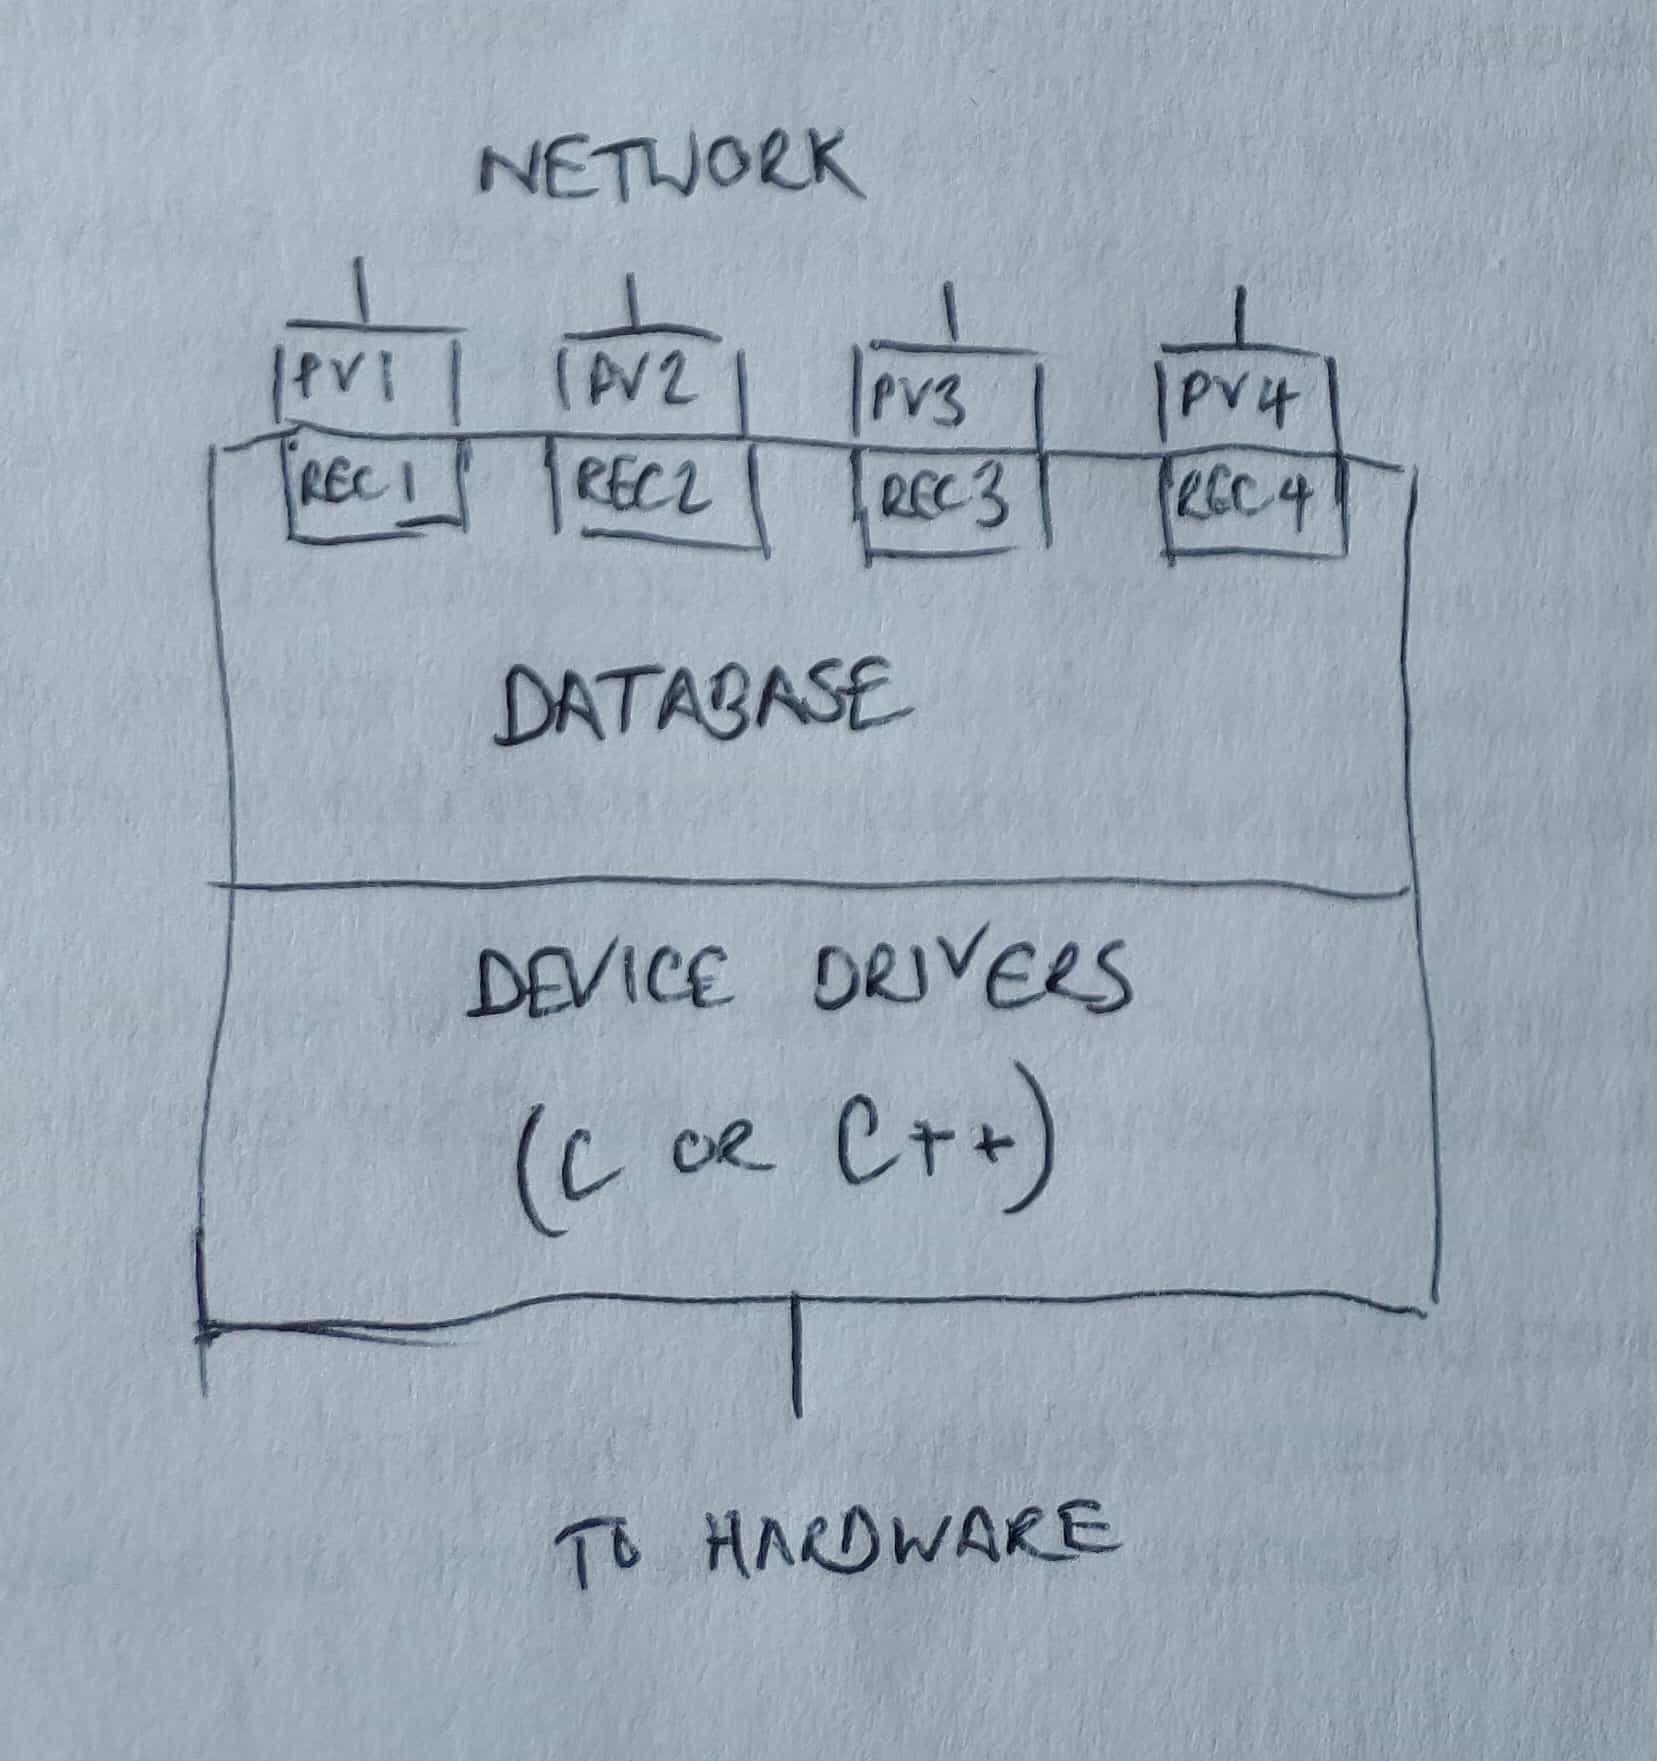 NETWORK
PV1 PV2 PV3 PV4
REC1 REC2 REC3 REC4
DATABASE
DEVICE DRIVERS
(C OR C++)
TO HARDWARE